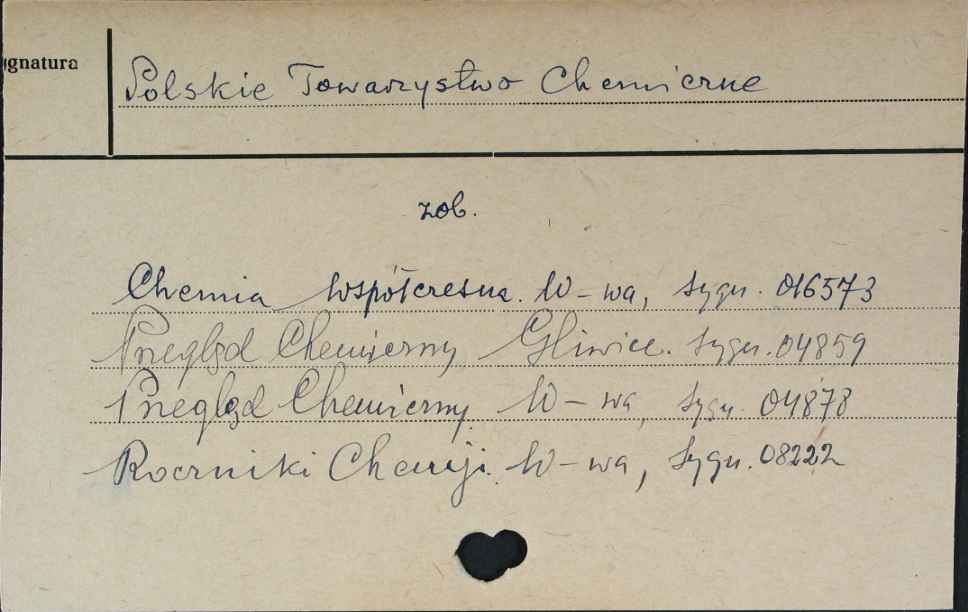 ygnatura
Polskie Towarzystwo Chemiczne
zob.
Chemia Współczesna. W-wa, sygn. 016573
Przegląd Chemiczny Gliwice. sygn. 04859
Przegląd Chemiczny W-wa, sygn. 04878
Roczniki Chemji. W-wa, sygn. 08222